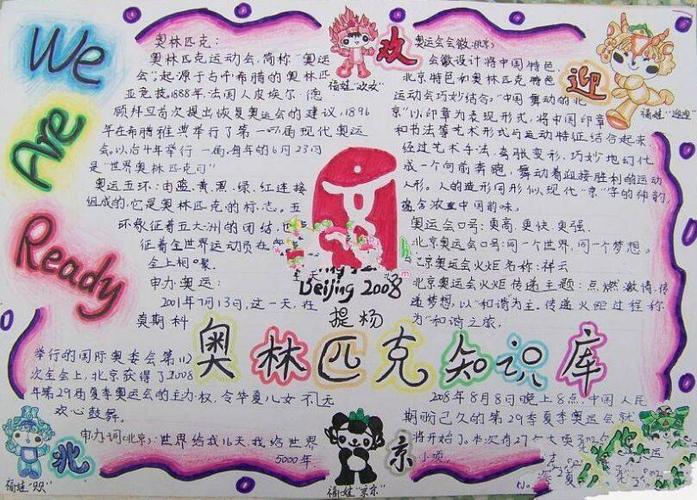 We
Are
Ready
奥林匹克:
奥林匹克运动会,简称“奥运
会”,起源于古希腊的奥林匹
亚竞技,1888年,法国人皮埃尔·德·
顾拜旦首次提出恢复奥运会的建议,1896
年在希腊雅典举行了第一届现代奥运
会,以后4年举行一届,每年的6月23日
是“世界奥林匹克日”
奥运五环:由蓝、黄、黑、绿、红连接
组成的,它是奥林匹克的标志。五
环象征着五大洲的团结,
征着全世界运动员在
会上相
申办奥运:
2001年7月13日,这一天,在
莫斯科
举行的国际奥委会第112
次全会上,北京获得了2008
年第29届夏季奥运会的主办权,令华夏儿女不
欢心鼓舞。
申办词(北京):世界给我16天,我给世界
5000年
福娃“欢欢”
欢
迎
福娃“迎迎”
奥运会会徽:(北京)
会徽设计将中国特色、
北京特色和奥林匹克特色
运动会巧妙结合,“中国舞动的北
京”以印章为表现形式,将中国印章
和书法等艺术形式与运动特征结合起来
经过艺术手法,夸张变形,巧妙地幻化
成一个向前奔跑,舞动着迎接胜利的运动
人形。人的造形同形似现代“京”字的神韵,
蕴含浓重中国韵味。
奥运会口号:更高,更快,更强.
北京奥运会口号:同一个世界,同一个梦想。
北京奥运会火炬名称:祥云
北京奥运会火炬传递主题:点燃激情,传
递梦想,以“和谐为主,传递火炬过程称
为“和谐之旅。
Beijing 2008
提 杨
奥林匹克知识库
2008年8月8日晚上8点,中国人民
期盼已久的第29季夏季奥运会就
将开始了,本次有27个大项
小项,
北
福娃“贝贝”
京
福娃“京京”